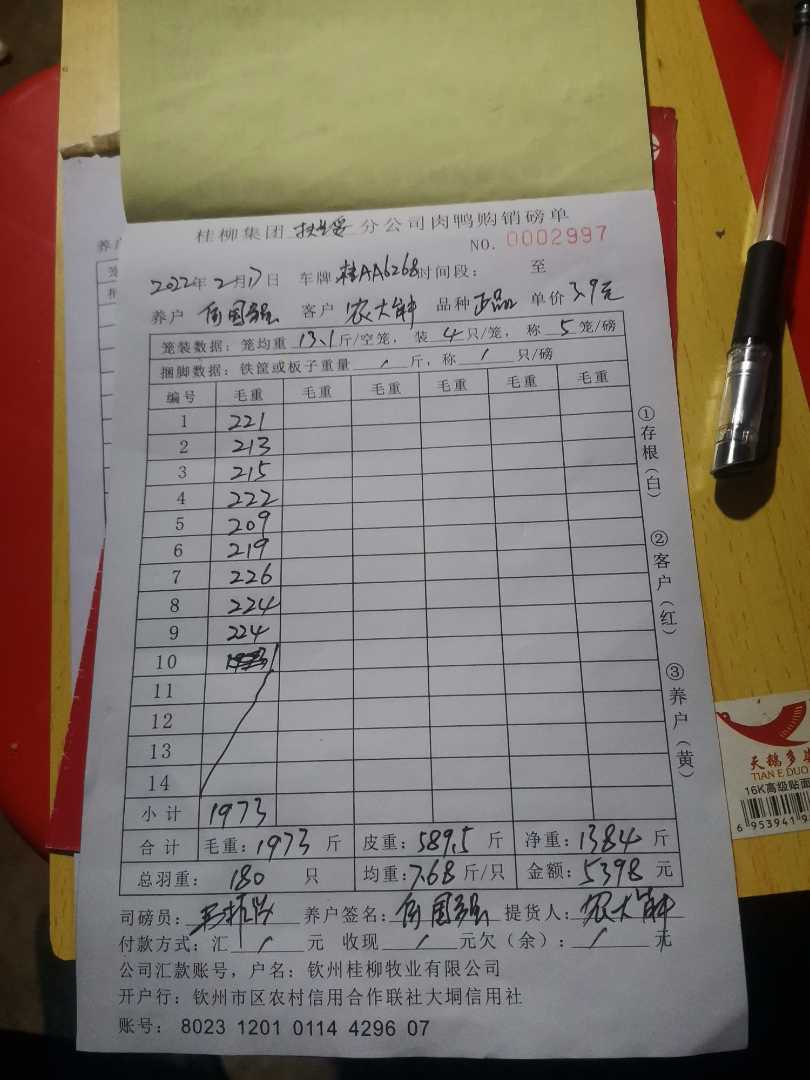 桂柳集团 扶绥 分公司肉鸭购销磅单
NO. 0002997
2022年2月17日 车牌 桂AA6268 时间段： 至
养户 客户 农大 品种 正品 单价 3.9元
笼装数据：笼均重 13.1 斤/空笼， 装 4 只/笼， 称 5 笼/磅
捆脚数据：铁筐或板子重量 / 斤，称 / 只/磅
编号 毛重 毛重 毛重 毛重 毛重 毛重
1 221
2 213
3 215
4 222
5 209
6 219
7 226
8 224
9 224
10
11
12
13
14
小计 1973
合计 毛重：1973 斤 皮重：589.5 斤 净重：1384 斤
总羽重： 180 只 均重：7.68 斤/只 金额：5398 元
司磅员： 养户签名： 提货人：农大
付款方式：汇 / 元 收现 / 元欠（余）： / 元
公司汇款账号，户名：钦州桂柳牧业有限公司
开户行：钦州市区农村信用合作联社大垌信用社
账号： 8023 1201 0114 4296 07
①存根（白）
②客户（红）
③养户（黄）
养户
天鹅多
TIAN E DUO
16K高级贴面
6 953941 9